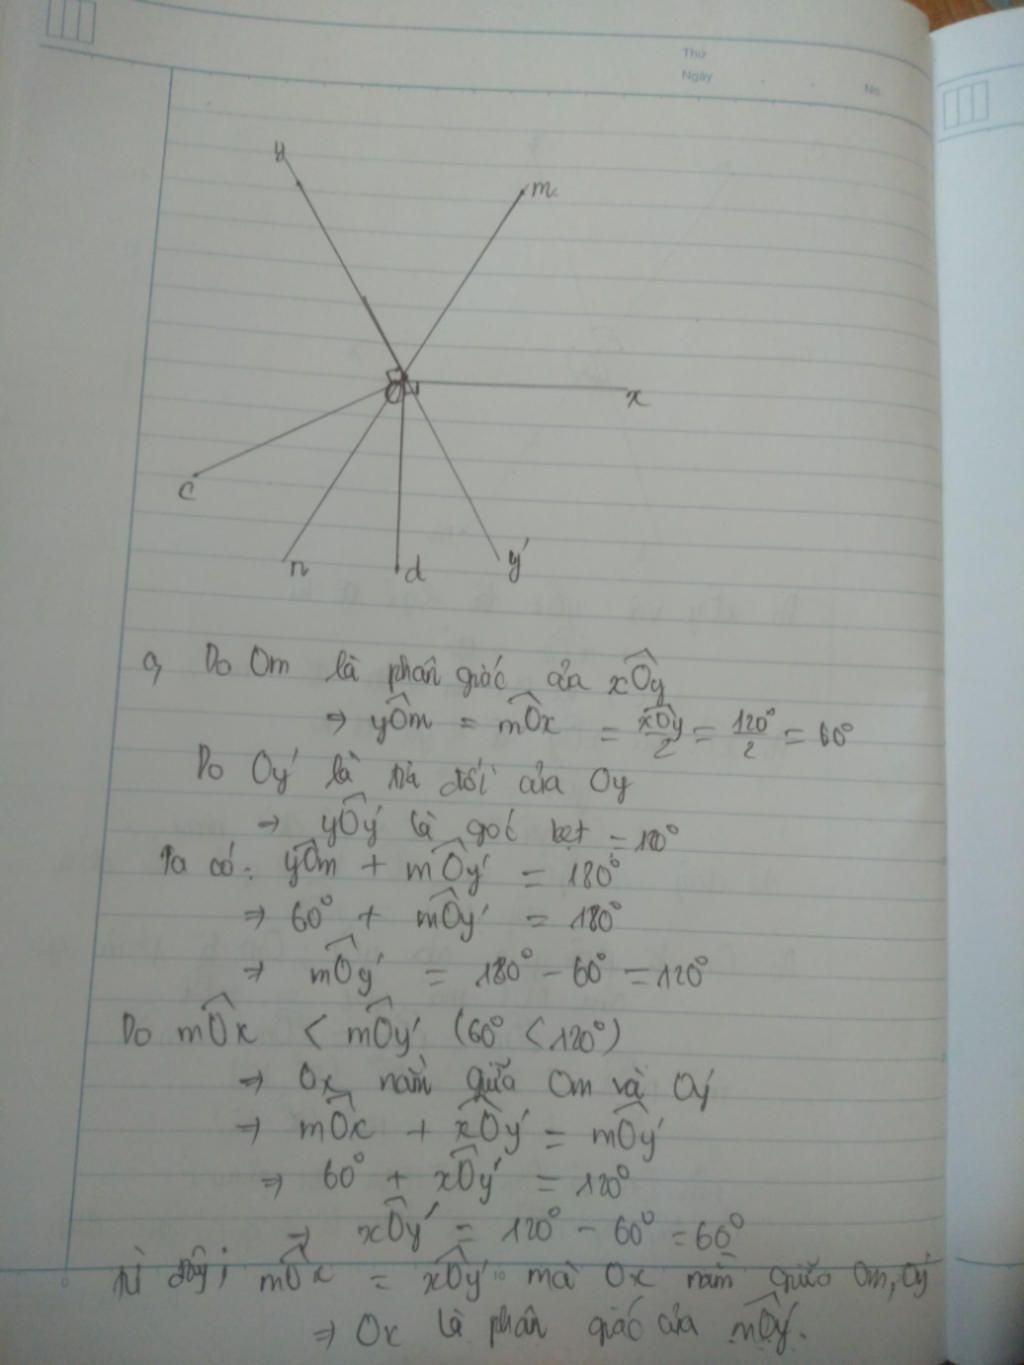 Thứ
Ngày
No.
y
m
x
O
c
n
d
y'
a, Do Om là phân giác của xÔy
⇒ yÔm = mÔx = xÔy/2 = 120°/2 = 60°
Do Oy' là tia đối của Oy
⇒ yÔy' là góc bẹt = 180°
Ta có: yÔm + mÔy' = 180°
⇒ 60° + mÔy' = 180°
⇒ mÔy' = 180° - 60° = 120°
Do mÔx < mÔy' (60° < 120°)
⇒ Ox nằm giữa Om và Oy'
⇒ mÔx + xÔy' = mÔy'
⇒ 60° + xÔy' = 120°
⇒ xÔy' = 120° - 60° = 60°
Từ đây; mÔx = xÔy' mà Ox nằm giữa Om, Oy'
⇒ Ox là phân giác của mÔy'.